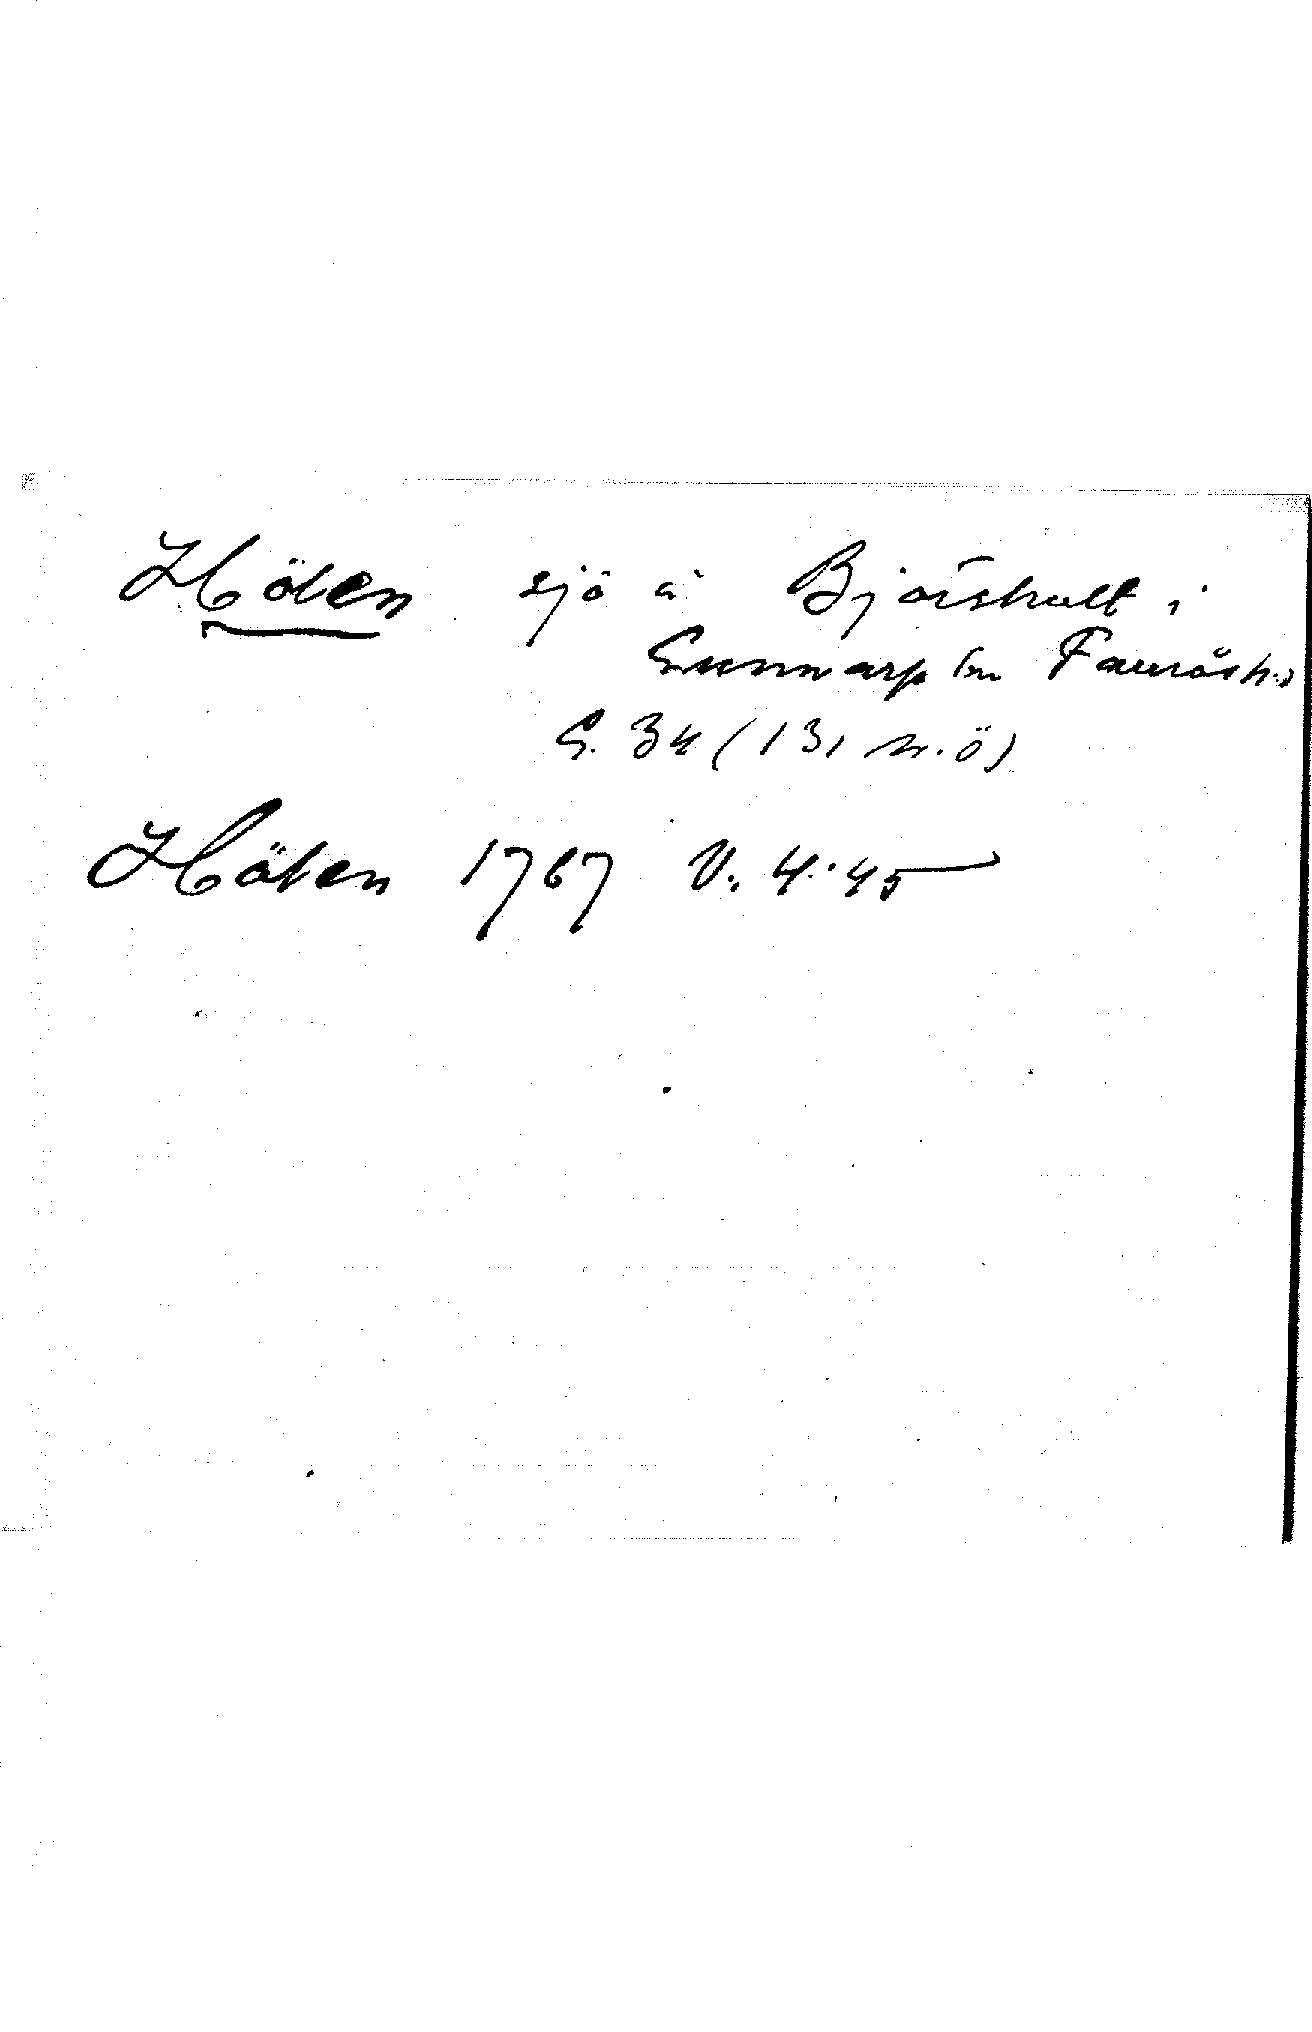 Hölen sjö å Björshult i
Gunnarp sn Fauråsh:d
G. 34 (131 n.ö)
Hölen 1767 V. 4:45